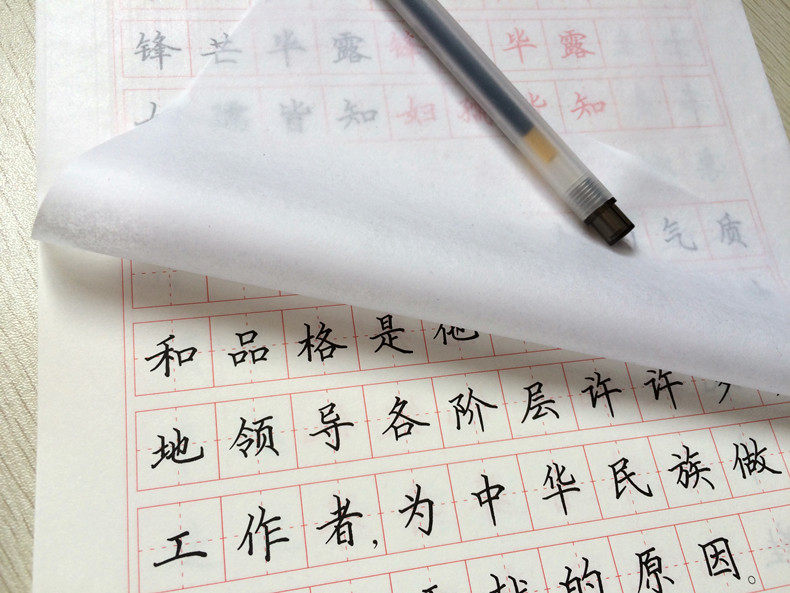 锋芒毕露锋 毕露
皆知妇孺皆知
气质
和品格是他
地领导各阶层许许
工作者,为中华民族做
的原因。